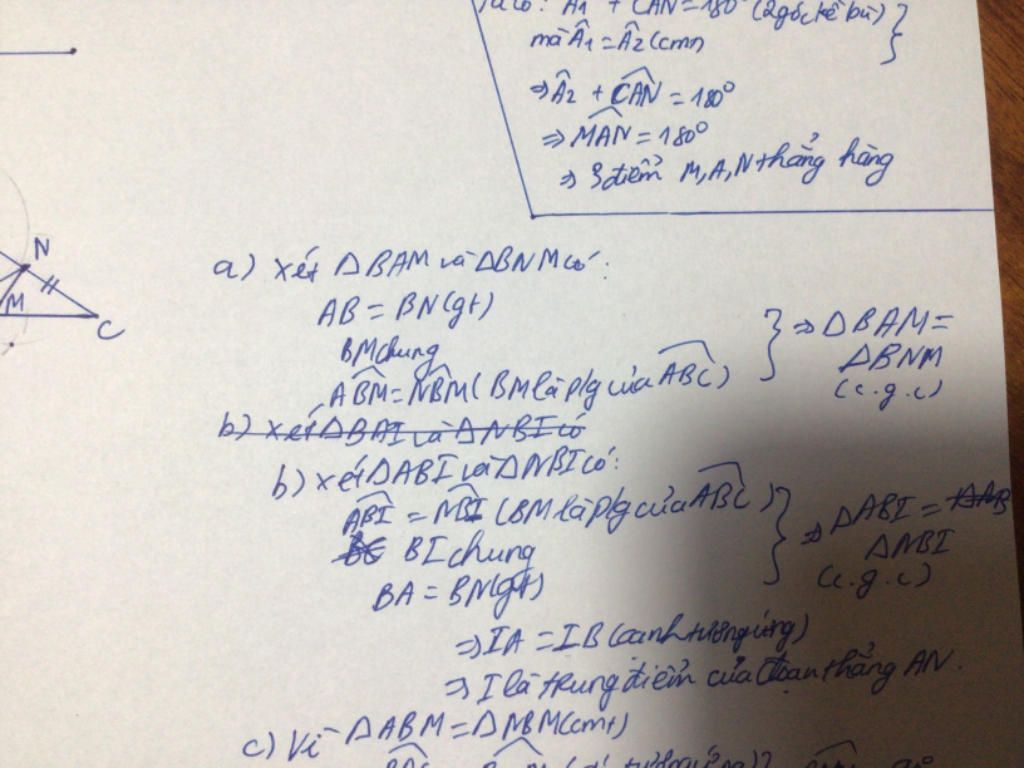 Ta có: Â1 + CAN = 180° (2 góc kề bù)
mà Â1 = Â2 (cmt)
⇒ Â2 + CAN = 180°
⇒ MAN = 180°
⇒ 3 điểm M, A, N thẳng hàng
N
M
C
a) Xét ΔBAM và ΔBNM có:
AB = BN (gt)
BM chung
ABM = NBM (BM là p/g của ABC)
⇒ ΔBAM =
ΔBNM
(c.g.c)
b) Xét ΔBAI và ΔNBI có
b) Xét ΔABI và ΔNBI có:
ABI = NBI (BM là p/g của ABC)
BI chung
BA = BN (gt)
⇒ ΔABI =
ΔNBI
(c.g.c)
⇒ IA = IB (cạnh tương ứng)
⇒ I là trung điểm của đoạn thẳng AN.
c) Vì ΔABM = ΔNBM (cmt)